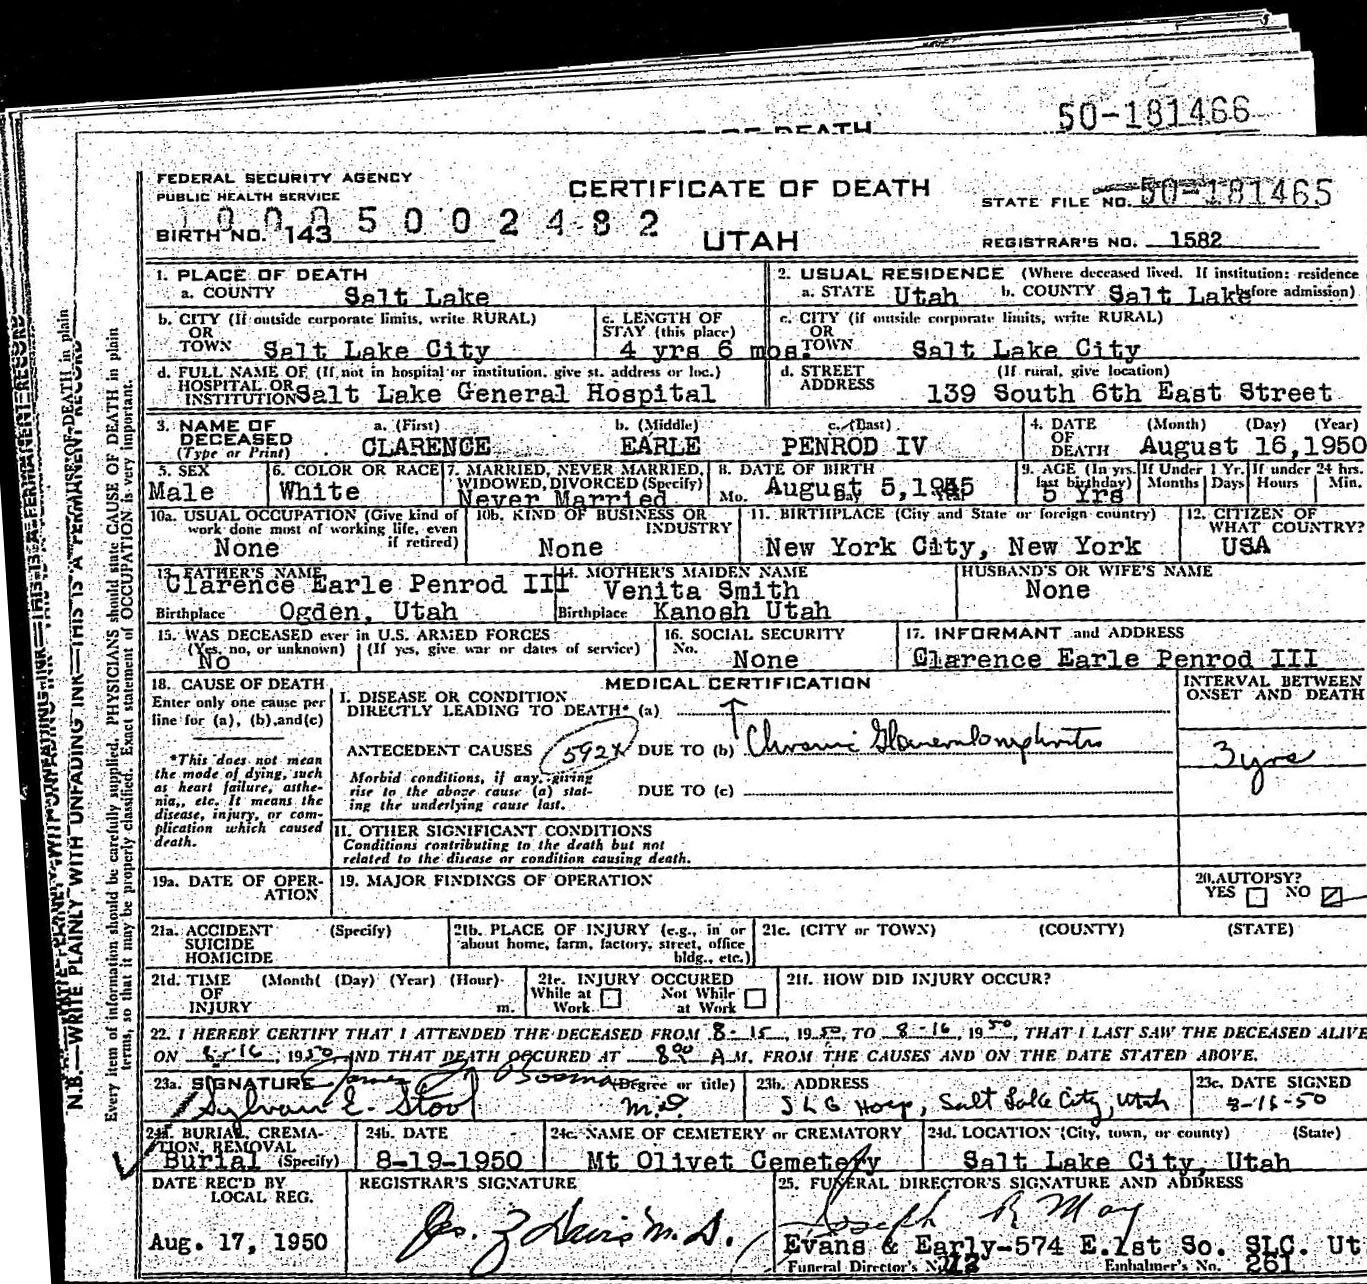 50-181466
OF DEATH
FEDERAL SECURITY AGENCY
PUBLIC HEALTH SERVICE
CERTIFICATE OF DEATH
STATE FILE NO. 50-181465
10005002482
BIRTH NO. 143
UTAH
REGISTRAR'S NO. 1582
1. PLACE OF DEATH
a. COUNTY Salt Lake
2. USUAL RESIDENCE (Where deceased lived. If institution: residence before admission)
a. STATE Utah b. COUNTY Salt Lake
b. CITY (If outside corporate limits, write RURAL)
OR
TOWN Salt Lake City
c. LENGTH OF
STAY (this place)
4 yrs 6 mos.
c. CITY (if outside corporate limits, write RURAL)
OR
TOWN Salt Lake City
d. FULL NAME OF (If not in hospital or institution, give st. address or loc.)
HOSPITAL OR
INSTITUTION Salt Lake General Hospital
d. STREET (If rural, give location)
ADDRESS 139 South 6th East Street
3. NAME OF a. (First) b. (Middle) c. (Last)
DECEASED
(Type or Print) CLARENCE EARLE PENROD IV
4. DATE (Month) (Day) (Year)
OF
DEATH August 16,1950
5. SEX
Male
6. COLOR OR RACE
White
7. MARRIED, NEVER MARRIED,
WIDOWED, DIVORCED (Specify)
Never Married
8. DATE OF BIRTH
Mo. Day
August 5,1945
9. AGE (In yrs. If Under 1 Yr. If under 24 hrs.
last birthday) Months Days Hours Min.
5 Yrs
10a. USUAL OCCUPATION (Give kind of
work done most of working life, even
if retired)
None
10b. KIND OF BUSINESS OR
INDUSTRY
None
11. BIRTHPLACE (City and State or foreign country)
New York City, New York
12. CITIZEN OF
WHAT COUNTRY?
USA
13. FATHER'S NAME
Clarence Earle Penrod III
Birthplace Ogden, Utah
14. MOTHER'S MAIDEN NAME
Venita Smith
Birthplace Kanosh Utah
HUSBAND'S OR WIFE'S NAME
None
15. WAS DECEASED ever in U.S. ARMED FORCES
(Yes, no, or unknown) (If yes, give war or dates of service)
No
16. SOCIAL SECURITY
No.
None
17. INFORMANT and ADDRESS
Clarence Earle Penrod III
18. CAUSE OF DEATH
Enter only one cause per
line for (a), (b), and (c)
*This does not mean
the mode of dying, such
as heart failure, asthe-
nia, etc. It means the
disease, injury, or com-
plication which caused
death.
MEDICAL CERTIFICATION
INTERVAL BETWEEN
ONSET AND DEATH
I. DISEASE OR CONDITION
DIRECTLY LEADING TO DEATH* (a)
ANTECEDENT CAUSES 592X DUE TO (b) Chronic Glomerulonephritis
3 yrs
Morbid conditions, if any, giving
rise to the above cause (a) stat-
ing the underlying cause last.
DUE TO (c)
II. OTHER SIGNIFICANT CONDITIONS
Conditions contributing to the death but not
related to the disease or condition causing death.
19a. DATE OF OPER-
ATION
19. MAJOR FINDINGS OF OPERATION
20. AUTOPSY?
YES NO
21a. ACCIDENT (Specify)
SUICIDE
HOMICIDE
21b. PLACE OF INJURY (e.g., in or
about home, farm, factory, street, office
bldg., etc.)
21c. (CITY or TOWN) (COUNTY) (STATE)
21d. TIME (Month( (Day) (Year) (Hour)
OF
INJURY m.
21e. INJURY OCCURED
While at Not While
Work at Work
21f. HOW DID INJURY OCCUR?
22. I HEREBY CERTIFY THAT I ATTENDED THE DECEASED FROM 8-15, 1950, TO 8-16, 1950, THAT I LAST SAW THE DECEASED ALIVE
ON 8-16, 1950, AND THAT DEATH OCCURED AT 8:00 A M. FROM THE CAUSES AND ON THE DATE STATED ABOVE.
23a. SIGNATURE (Degree or title)
James
Sylvan E. Stool M.D.
23b. ADDRESS
SLG Hosp, Salt Lake City, Utah
23c. DATE SIGNED
8-16-50
24a. BURIAL, CREMA-
TION, REMOVAL
(Specify)
Burial
24b. DATE
8-19-1950
24c. NAME OF CEMETERY or CREMATORY
Mt Olivet Cemetery
24d. LOCATION (City, town, or county) (State)
Salt Lake City, Utah
DATE REC'D BY
LOCAL REG.
Aug. 17, 1950
REGISTRAR'S SIGNATURE
Jos. Z Davis M.D.
25. FUNERAL DIRECTOR'S SIGNATURE AND ADDRESS
Joseph R May
Evans & Early-574 E.1st So. SLC. Ut
Funeral Director's No. Embalmer's No. 261
N.B.—WRITE PLAINLY WITH UNFADING INK—THIS IS A PERMANENT RECORD
Every item of information should be carefully supplied. PHYSICIANS should state CAUSE OF DEATH in plain
terms, so that it may be properly classified. Exact statement of OCCUPATION is very important.